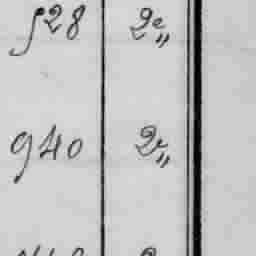 528 2e„
940 2e„